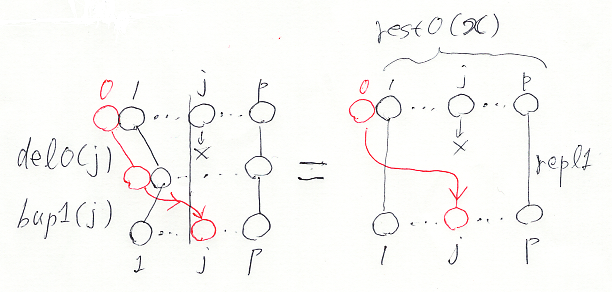 rest0(x)
0 1 ... j ... p
0 1 ... j ... p
x
x
del0(j)
=
repl1
bup1(j)
1 ... j ... p
1 ... j ... p